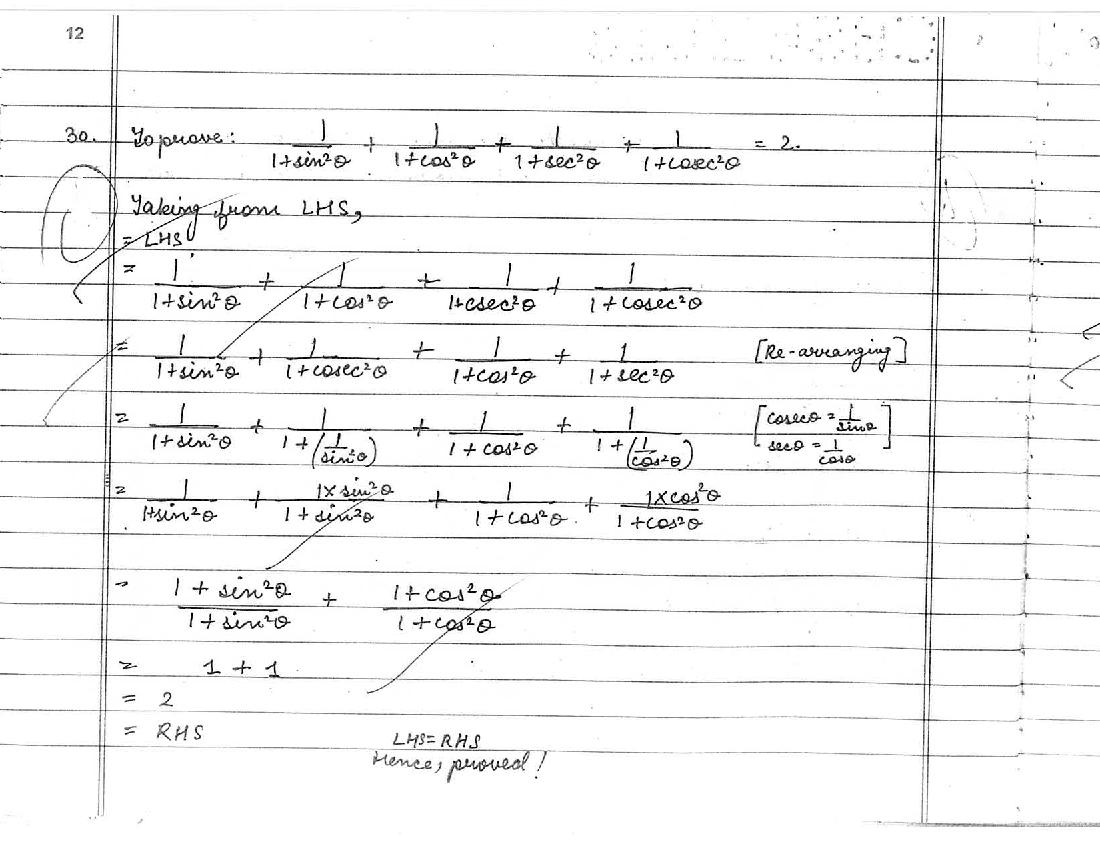 12
30. To prove: 1/(1+sin²θ) + 1/(1+cos²θ) + 1/(1+sec²θ) + 1/(1+cosec²θ) = 2.
Taking from LHS,
= LHS
= 1/(1+sin²θ) + 1/(1+cos²θ) + 1/(1+csec²θ) + 1/(1+cosec²θ)
= 1/(1+sin²θ) + 1/(1+cosec²θ) + 1/(1+cos²θ) + 1/(1+sec²θ) [Re-arranging]
= 1/(1+sin²θ) + 1/(1+(1/sin²θ)) + 1/(1+cos²θ) + 1/(1+(1/cos²θ)) [cosecθ = 1/sinθ secθ = 1/cosθ]
= 1/(1+sin²θ) + (1×sin²θ)/(1+sin²θ) + 1/(1+cos²θ) + (1×cos²θ)/(1+cos²θ)
= (1+sin²θ)/(1+sin²θ) + (1+cos²θ)/(1+cos²θ)
= 1 + 1
= 2
= RHS
LHS=RHS
Hence, proved!